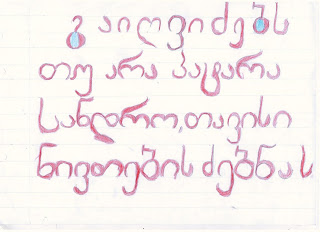 გაიღვიძებს
თუ არა პატარა
სანდრო,თავისი
ნივთების ძებნას